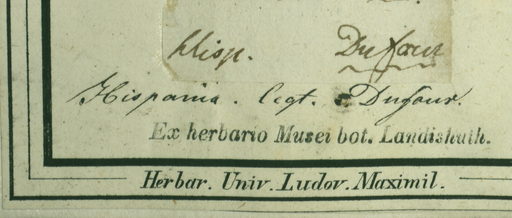 Hisp. Dufour
Hispania. legt. Dufour.
Ex herbario Musei bot. Landishuth.
Herbar. Univ. Ludov. Maximil.